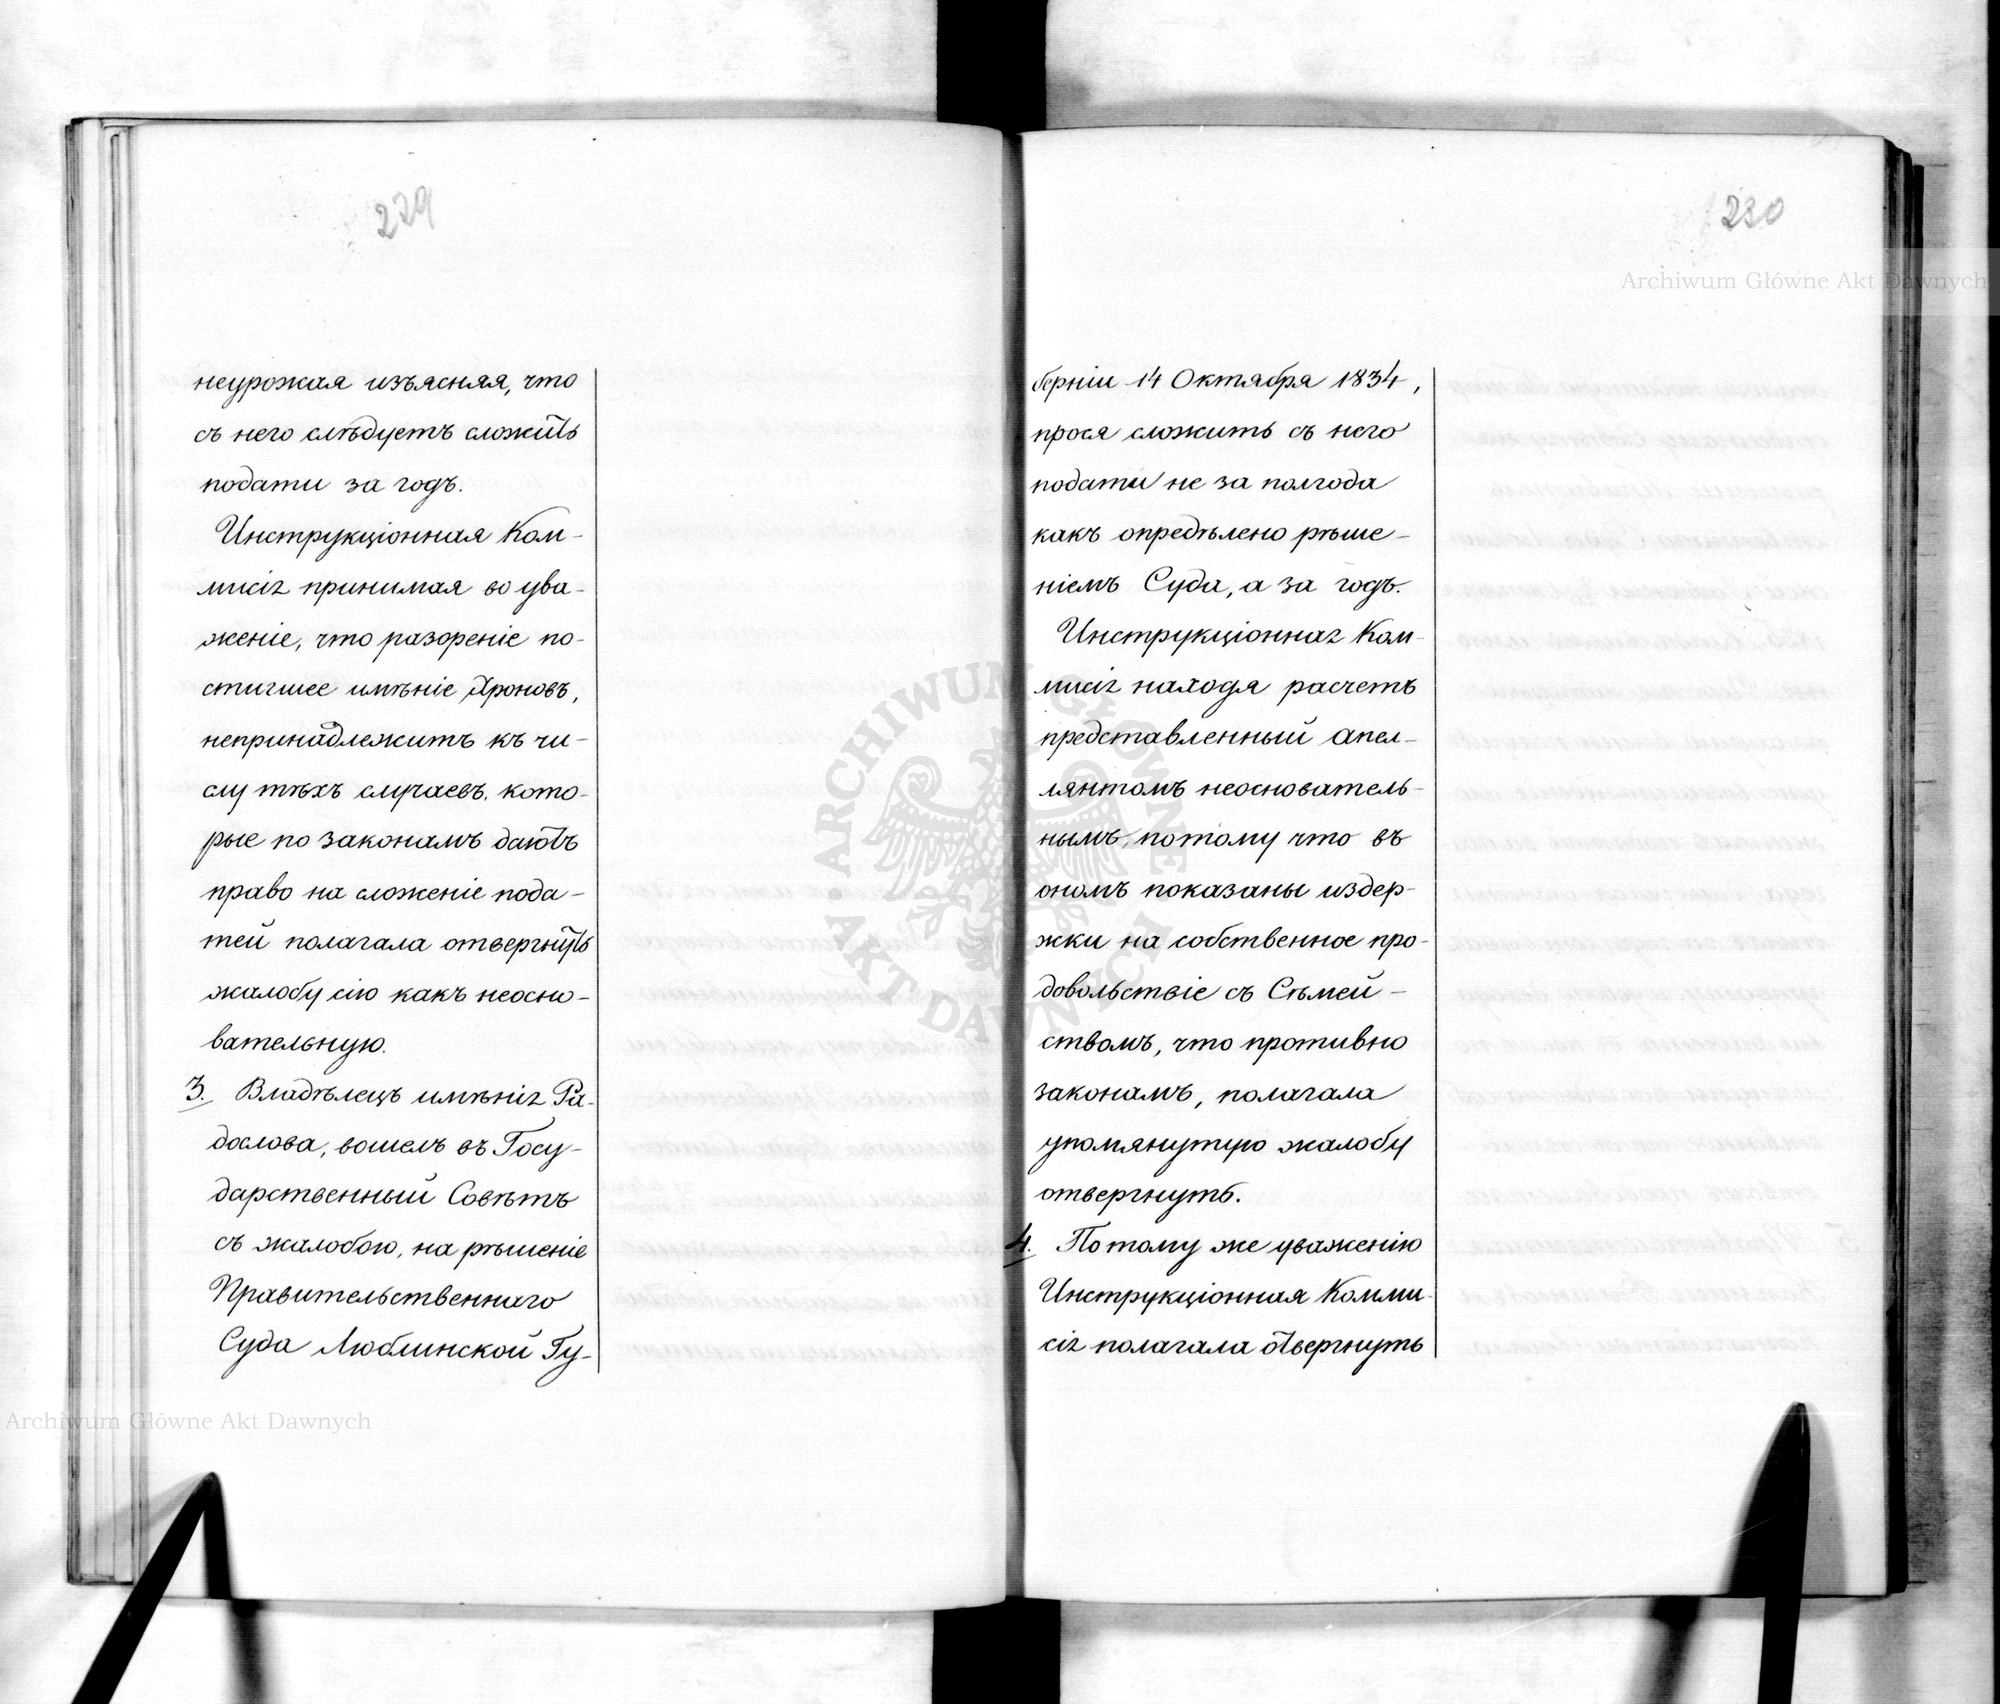 229
неурожая изъясняя, что
съ него слѣдуетъ сложить
подати за годъ.
Инструкціонная Ком-
мисія принимая во ува-
женіе, что разореніе по-
стигшее имѣніе Хроновъ,
непринадлежитъ къ чи-
слу тѣхъ случаевъ, кото-
рые по законамъ даютъ
право на сложеніе пода-
тей полагала отвергнуть
жалобу сію какъ неосно-
вательную.
3. Владѣлецъ имѣнія Ра-
дослова, вошелъ въ Госу-
дарственный Совѣтъ
съ жалобою, на рѣшеніе
Правительственнаго
Суда Люблинской Гу-
230
Archiwum Główne Akt Dawnych
берніи 14 Октября 1834,
прося сложить съ него
подати не за полгода
какъ опредѣлено рѣше-
ніемъ Суда, а за годъ.
Инструкціонная Ком-
мисія находя расчетъ
представленный апел-
лянтомъ неоснователь-
нымъ, потому что въ
ономъ показаны издер-
жки на собственное про-
довольствіе съ Сѣмей-
ствомъ, что противно
законамъ, полагала
упомянутую жалобу
отвергнуть.
4. Потому же уваженію
Инструкціонная Комми-
сія полагала отвергнуть
ARCHIWUM GŁÓWNE AKT DAWNYCH
Archiwum Główne Akt Dawnych